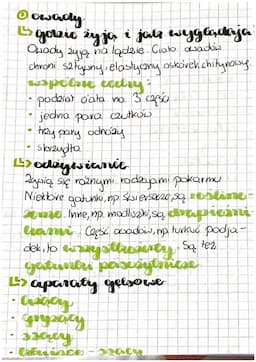 owady
gdzie żyją i jak wyglądają?
Owady żyją na lądzie. Ciało owadów
chroni sztywny, elastyczny oskórek chitynowy.
wspólne cechy:
• podział ciała na 3 części
• jedna para czułków
• trzy pary odnóży
• skrzydła
odżywianie
Żywią się różnymi rodzajami pokarmu
Niektóre gatunki, np. świerszcze, są roślino-
żerne. Inne, np. modliszki, są drapieżni
kami. Część owadów, np. turkuć podja-
dek, to wszystkożercy. Są też
gatunki pasożytnicze
aparaty gębowe
• liżący
• gryzący
• ssący
- ssący